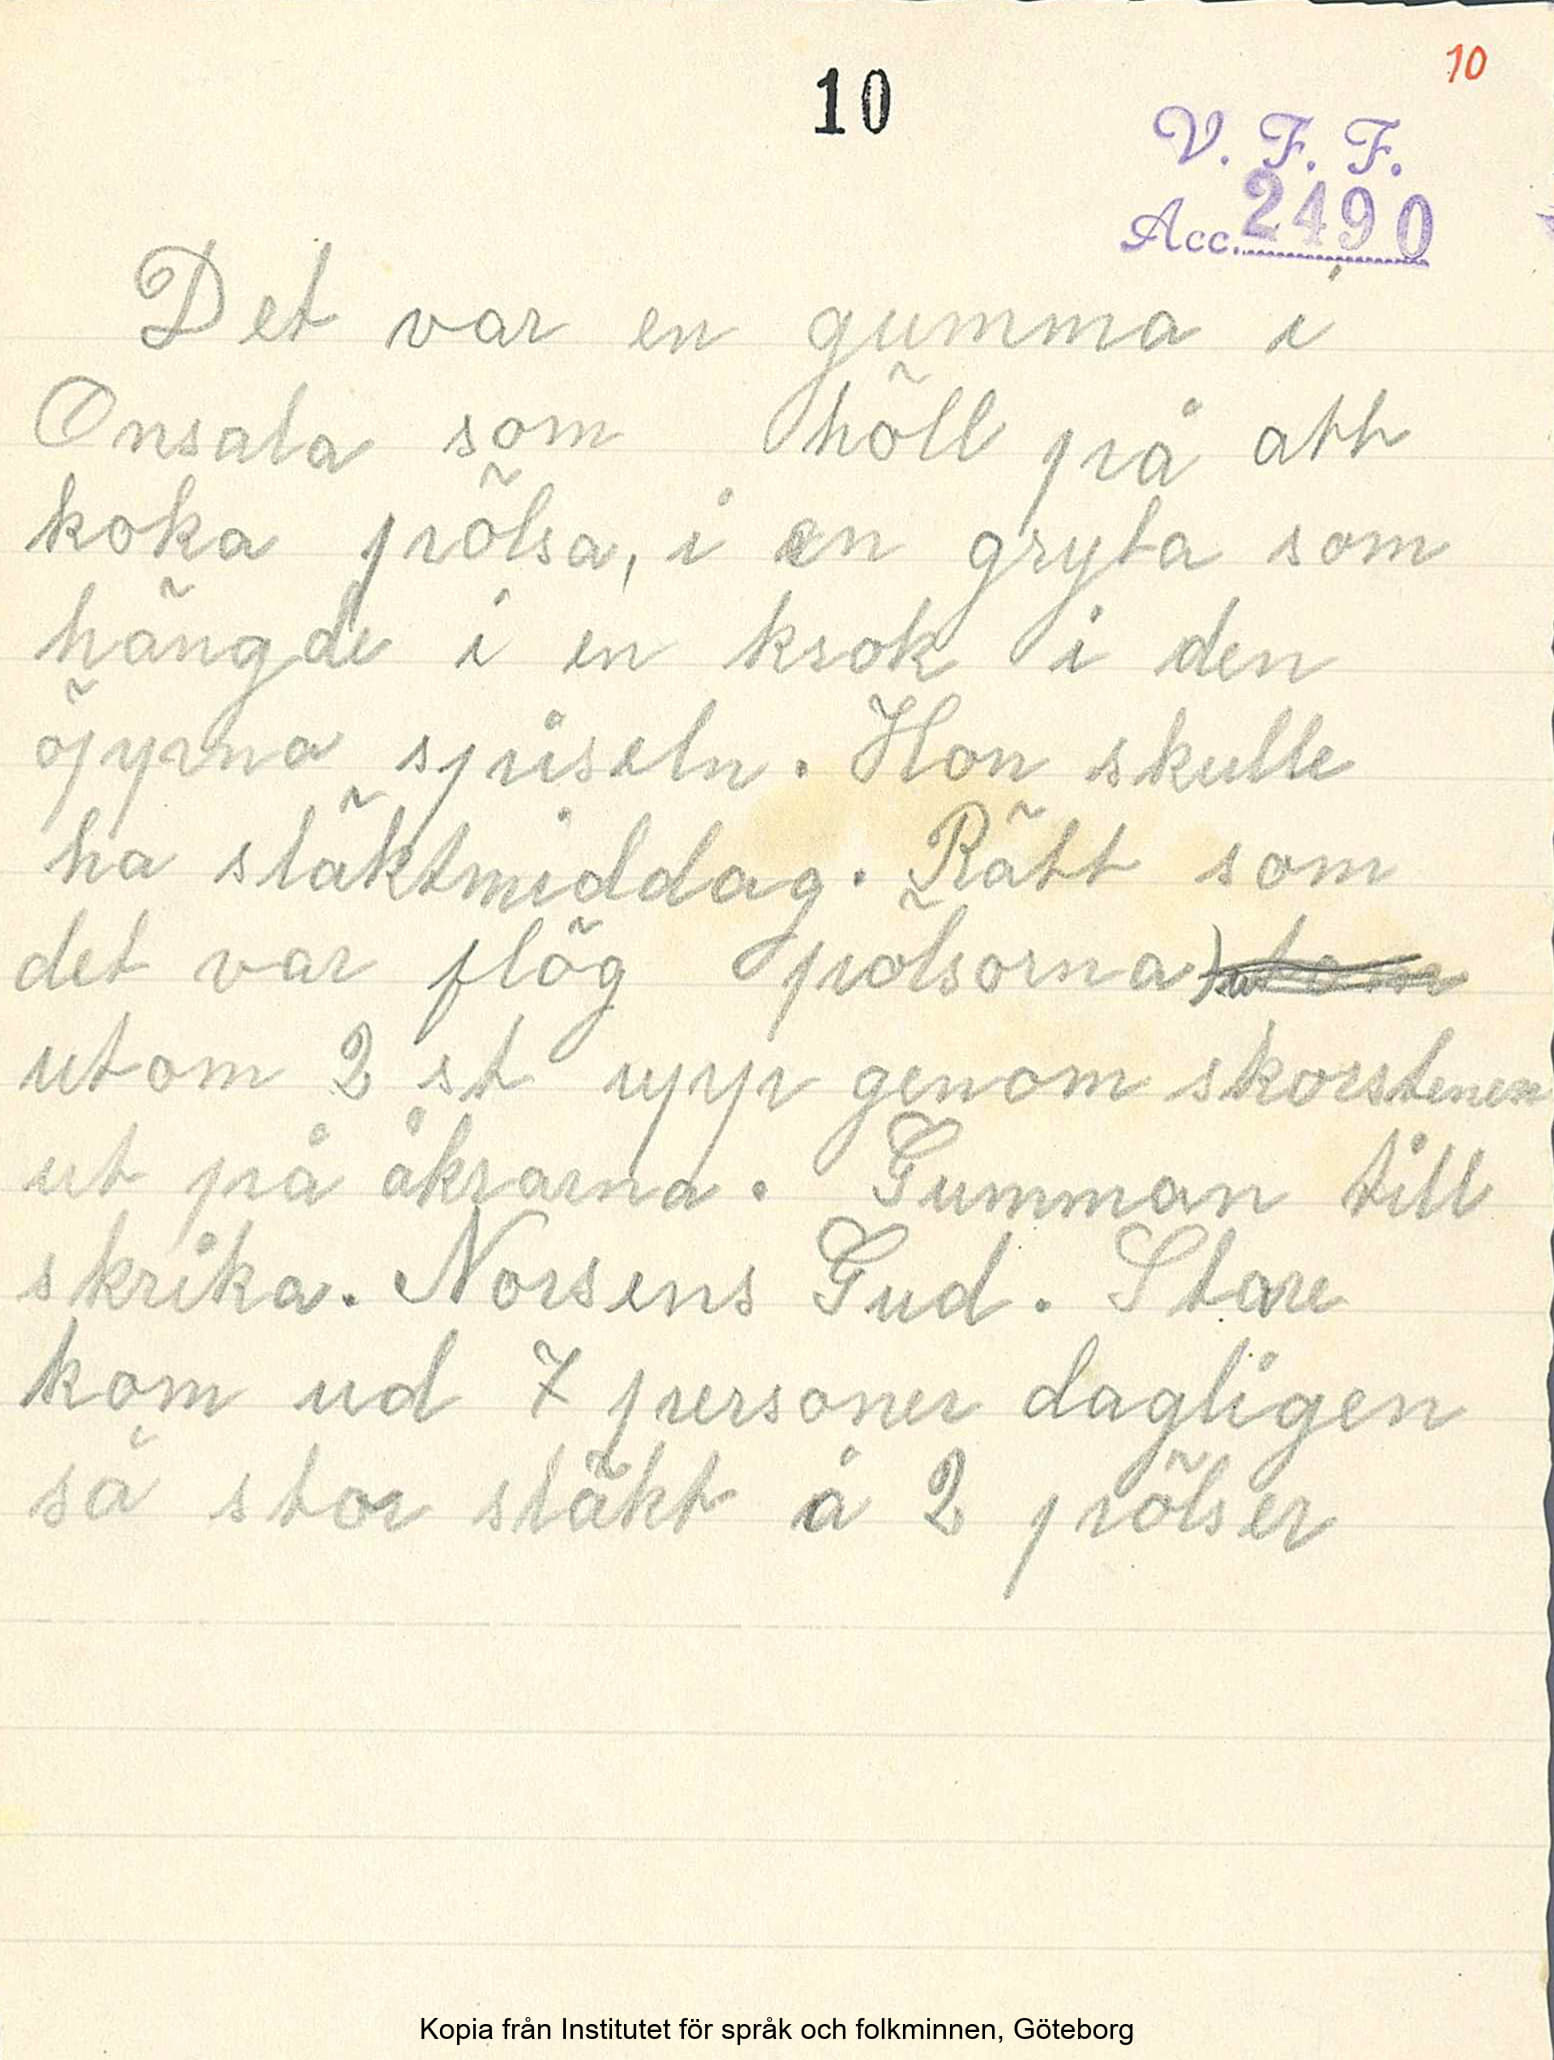 10
10
V. F. F.
Acc. 2490
Det var en gumma i
Onsala som höll på att
koka pölsa, i en gryta som
hängde i en krok i den
öpyrna spiseln. Hon skulle
ha släktmiddag. Rätt som
det var flög pölsorna)
utom 2 st upp genom skorstenen
ut på åkrarna. Gumman till
skrika. Norsens Gud. Stare
kom ud 7 personer dagligen
så stor släkt å 2 pölser
Kopia från Institutet för språk och folkminnen, Göteborg